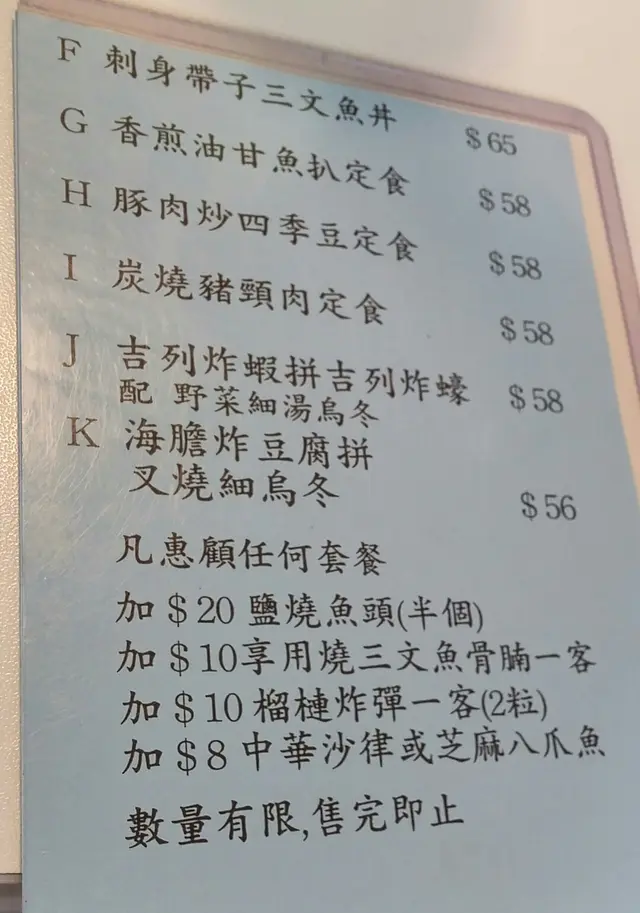 F 刺身帶子三文魚丼 $65
G 香煎油甘魚扒定食 $58
H 豚肉炒四季豆定食 $58
I 炭燒豬頸肉定食 $58
J 吉列炸蝦拼吉列炸蠔 $58
配 野菜細湯烏冬
K 海膽炸豆腐拼
叉燒細烏冬 $56
凡惠顧任何套餐
加$20鹽燒魚頭(半個)
加$10享用燒三文魚骨腩一客
加$10榴槤炸彈一客(2粒)
加$8中華沙律或芝麻八爪魚
數量有限,售完即止